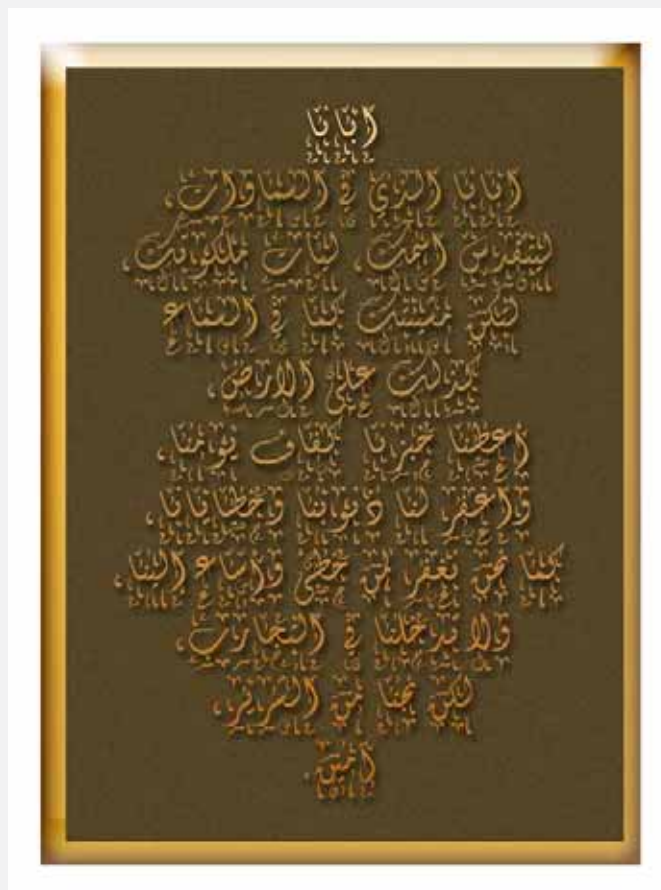 أبانا
أبانا الذي في السماوات،
ليتقدس اسمك، ليأت ملكوتك،
لتكن مشيئتك كما في السماء
كذلك على الارض،
أعطنا خبزنا كفاف يومنا،
واغفر لنا ذنوبنا وخطايانا،
كما نحن نغفر لمن خطئ وأساء إلينا،
ولا تدخلنا في التجارب،
لكن نجنا من الشرير،
آمين.